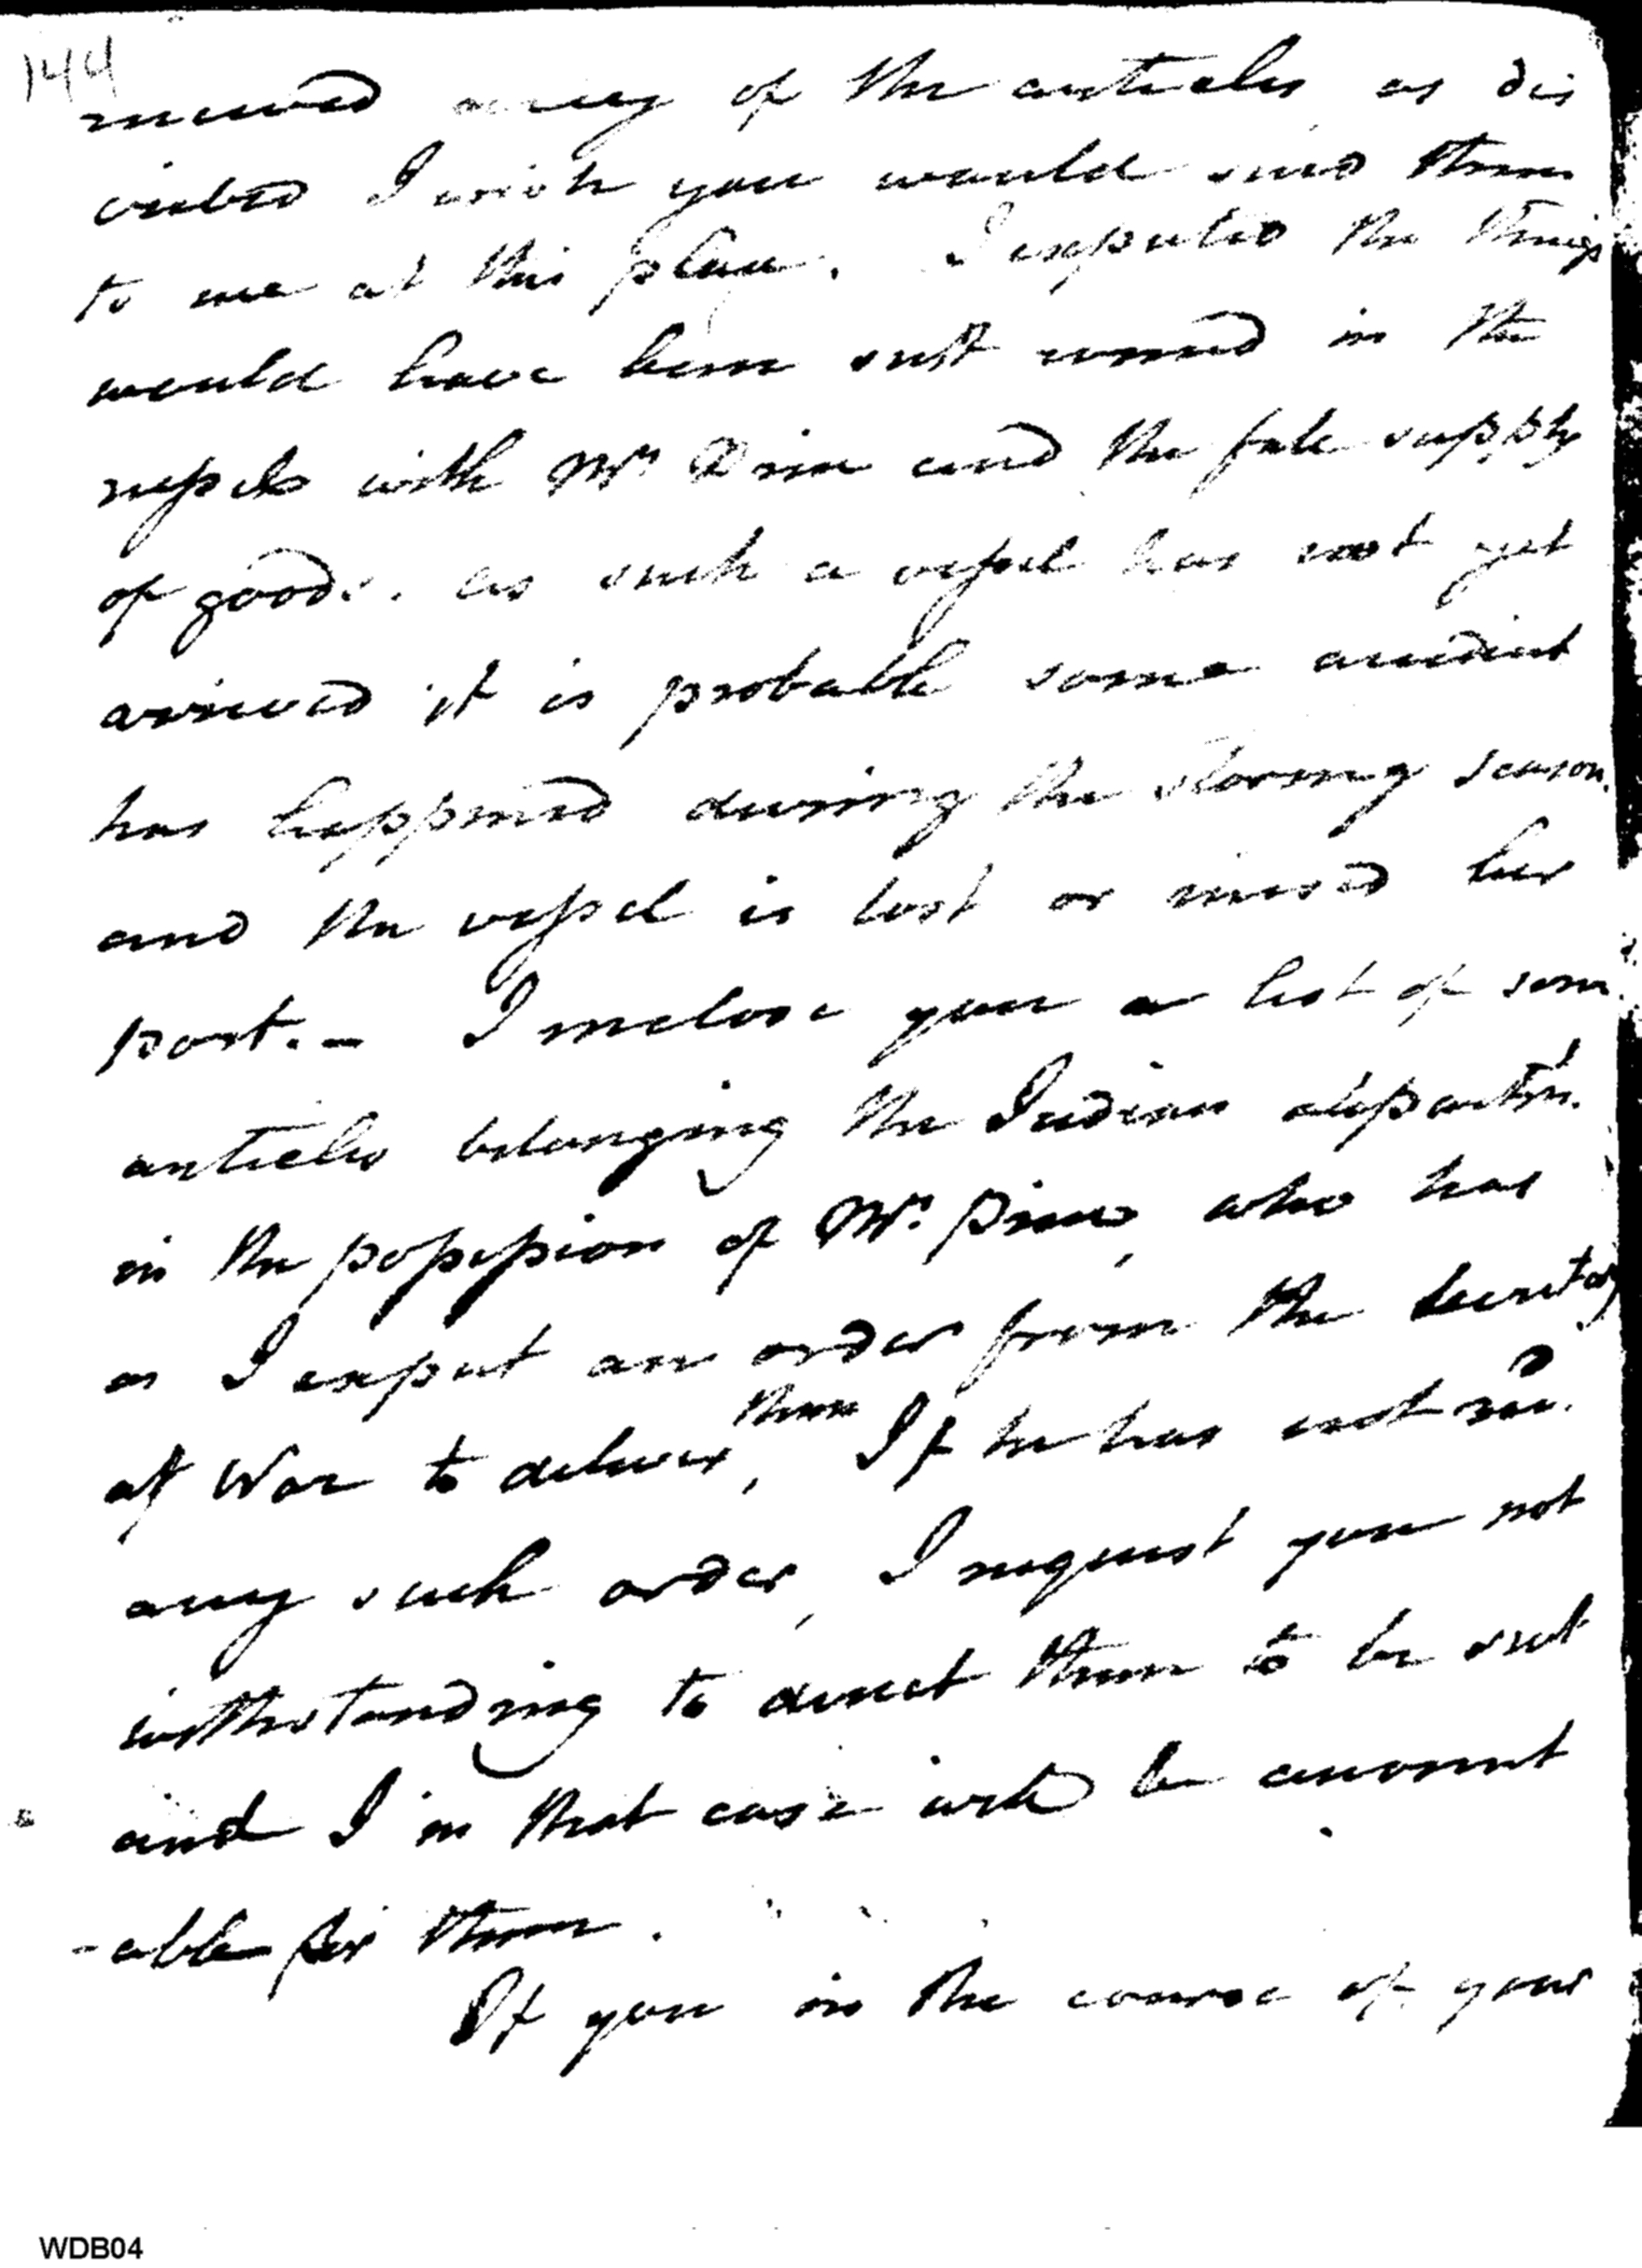 144
mceived any of the articles as dis
cribed I wish you would send them
to me at this place. I expected the things
would have been sent round in the
vessels with Mr Price and the fale supply
of goods. as such a vessel has not yet
arrived it is probable some accident
has happened during the stormy season
and the vessel is lost or missed her
port. - I inclose you a list of some
articles belonging the Indian departmt.
in the possession of Mr. Price, who has
as I expect an order from the Secretary
of War to deliver them, If he has not recd.
any such order, I request you not
withstanding to direct them to be sent
and I in that case will be account
-able for them.
If you in the course of your
WDB04